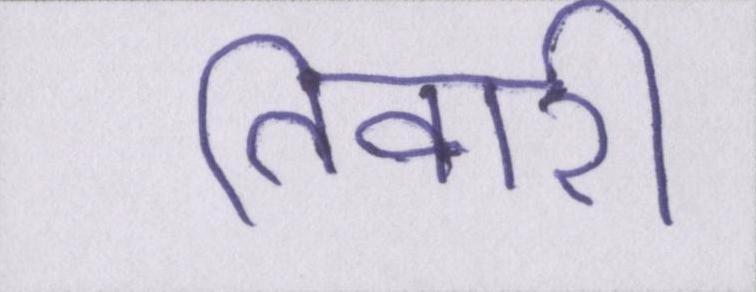 तिवारी